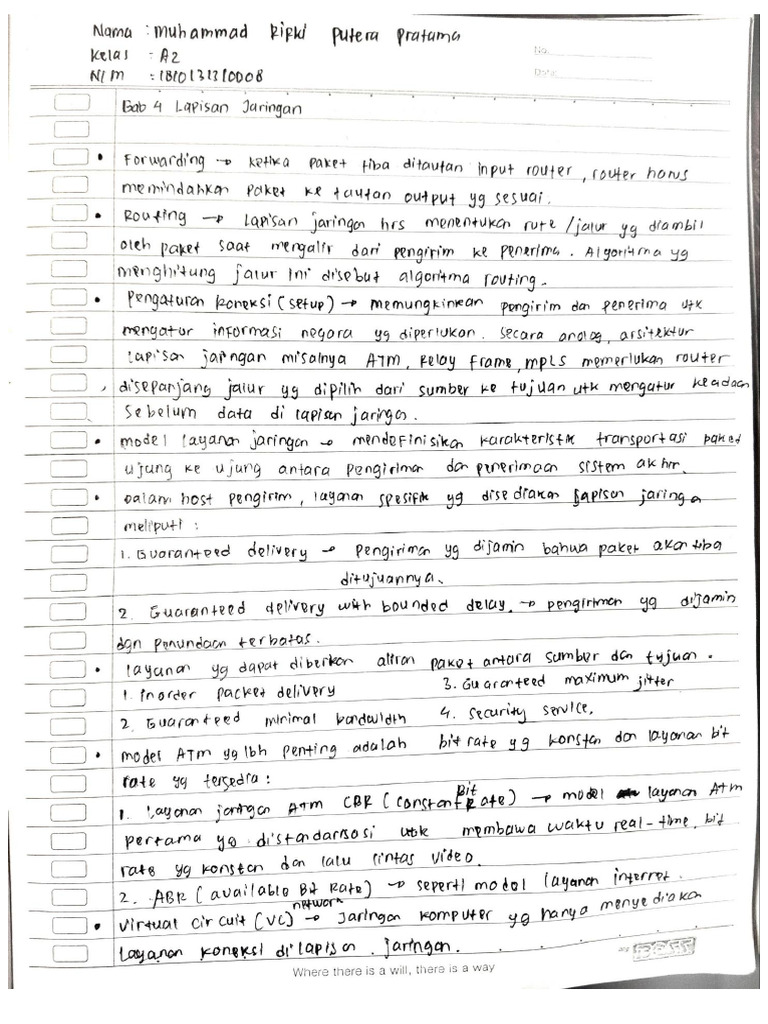 Nama : Muhammad Rifki Putera Pratama
Kelas : A2
NIM : 1810131310008
No.
Date:
Bab 4 Lapisan Jaringan
• Forwarding → ketika paket tiba ditautan input router, router harus
memindahkan paket ke tautan output yg sesuai.
• Routing → Lapisan jaringan hrs menentukan rute/jalur yg diambil
oleh paket saat mengalir dari pengirim ke penerima. Algoritma yg
menghitung jalur ini disebut algoritma routing.
• Pengaturan koneksi (setup) → memungkinkan pengirim dan penerima utk
mengatur informasi negara yg diperlukan. Secara analog, arsitektur
lapisan jaringan misalnya ATM, Relay frame, MPLS memerlukan router
disepanjang jalur yg dipilih dari sumber ke tujuan utk mengatur keadaan
Sebelum data di lapisan jaringan.
• model layanan jaringan → mendefinisikan karakteristik transportasi paket
ujung ke ujung antara pengiriman dan penerimaan sistem akhir.
• Dalam host pengirim, layanan spesifik yg disediakan lapisan jaringa
meliputi :
1. Guaranteed delivery → pengiriman yg dijamin bahwa paket akan tiba
ditujuannya.
2. Guaranteed delivery with bounded delay. → pengiriman yg dijamin
dgn penundaan terbatas.
• layanan yg dapat diberikan aliran paket antara sumber dan tujuan.
1. Inorder packet delivery 3. Guaranteed maximum jitter
2. Guaranteed minimal bandwidth 4. Security service.
• model ATM yg lbh penting adalah bit rate yg konstan dan layanan bit
rate yg tersedia :
1. Layanan jaringan ATM CBR (Constant Bit Rate) → model layanan ATM
pertama yg distandarisasi utk membawa waktu real-time, bit
rate yg konstan dan lalu lintas video.
2. ABR (available Bit Rate) → seperti model layanan internet.
• Virtual circuit (VC) network → Jaringan komputer yg hanya menyediakan
layanan koneksi di lapisan jaringan.
Where there is a will, there is a way